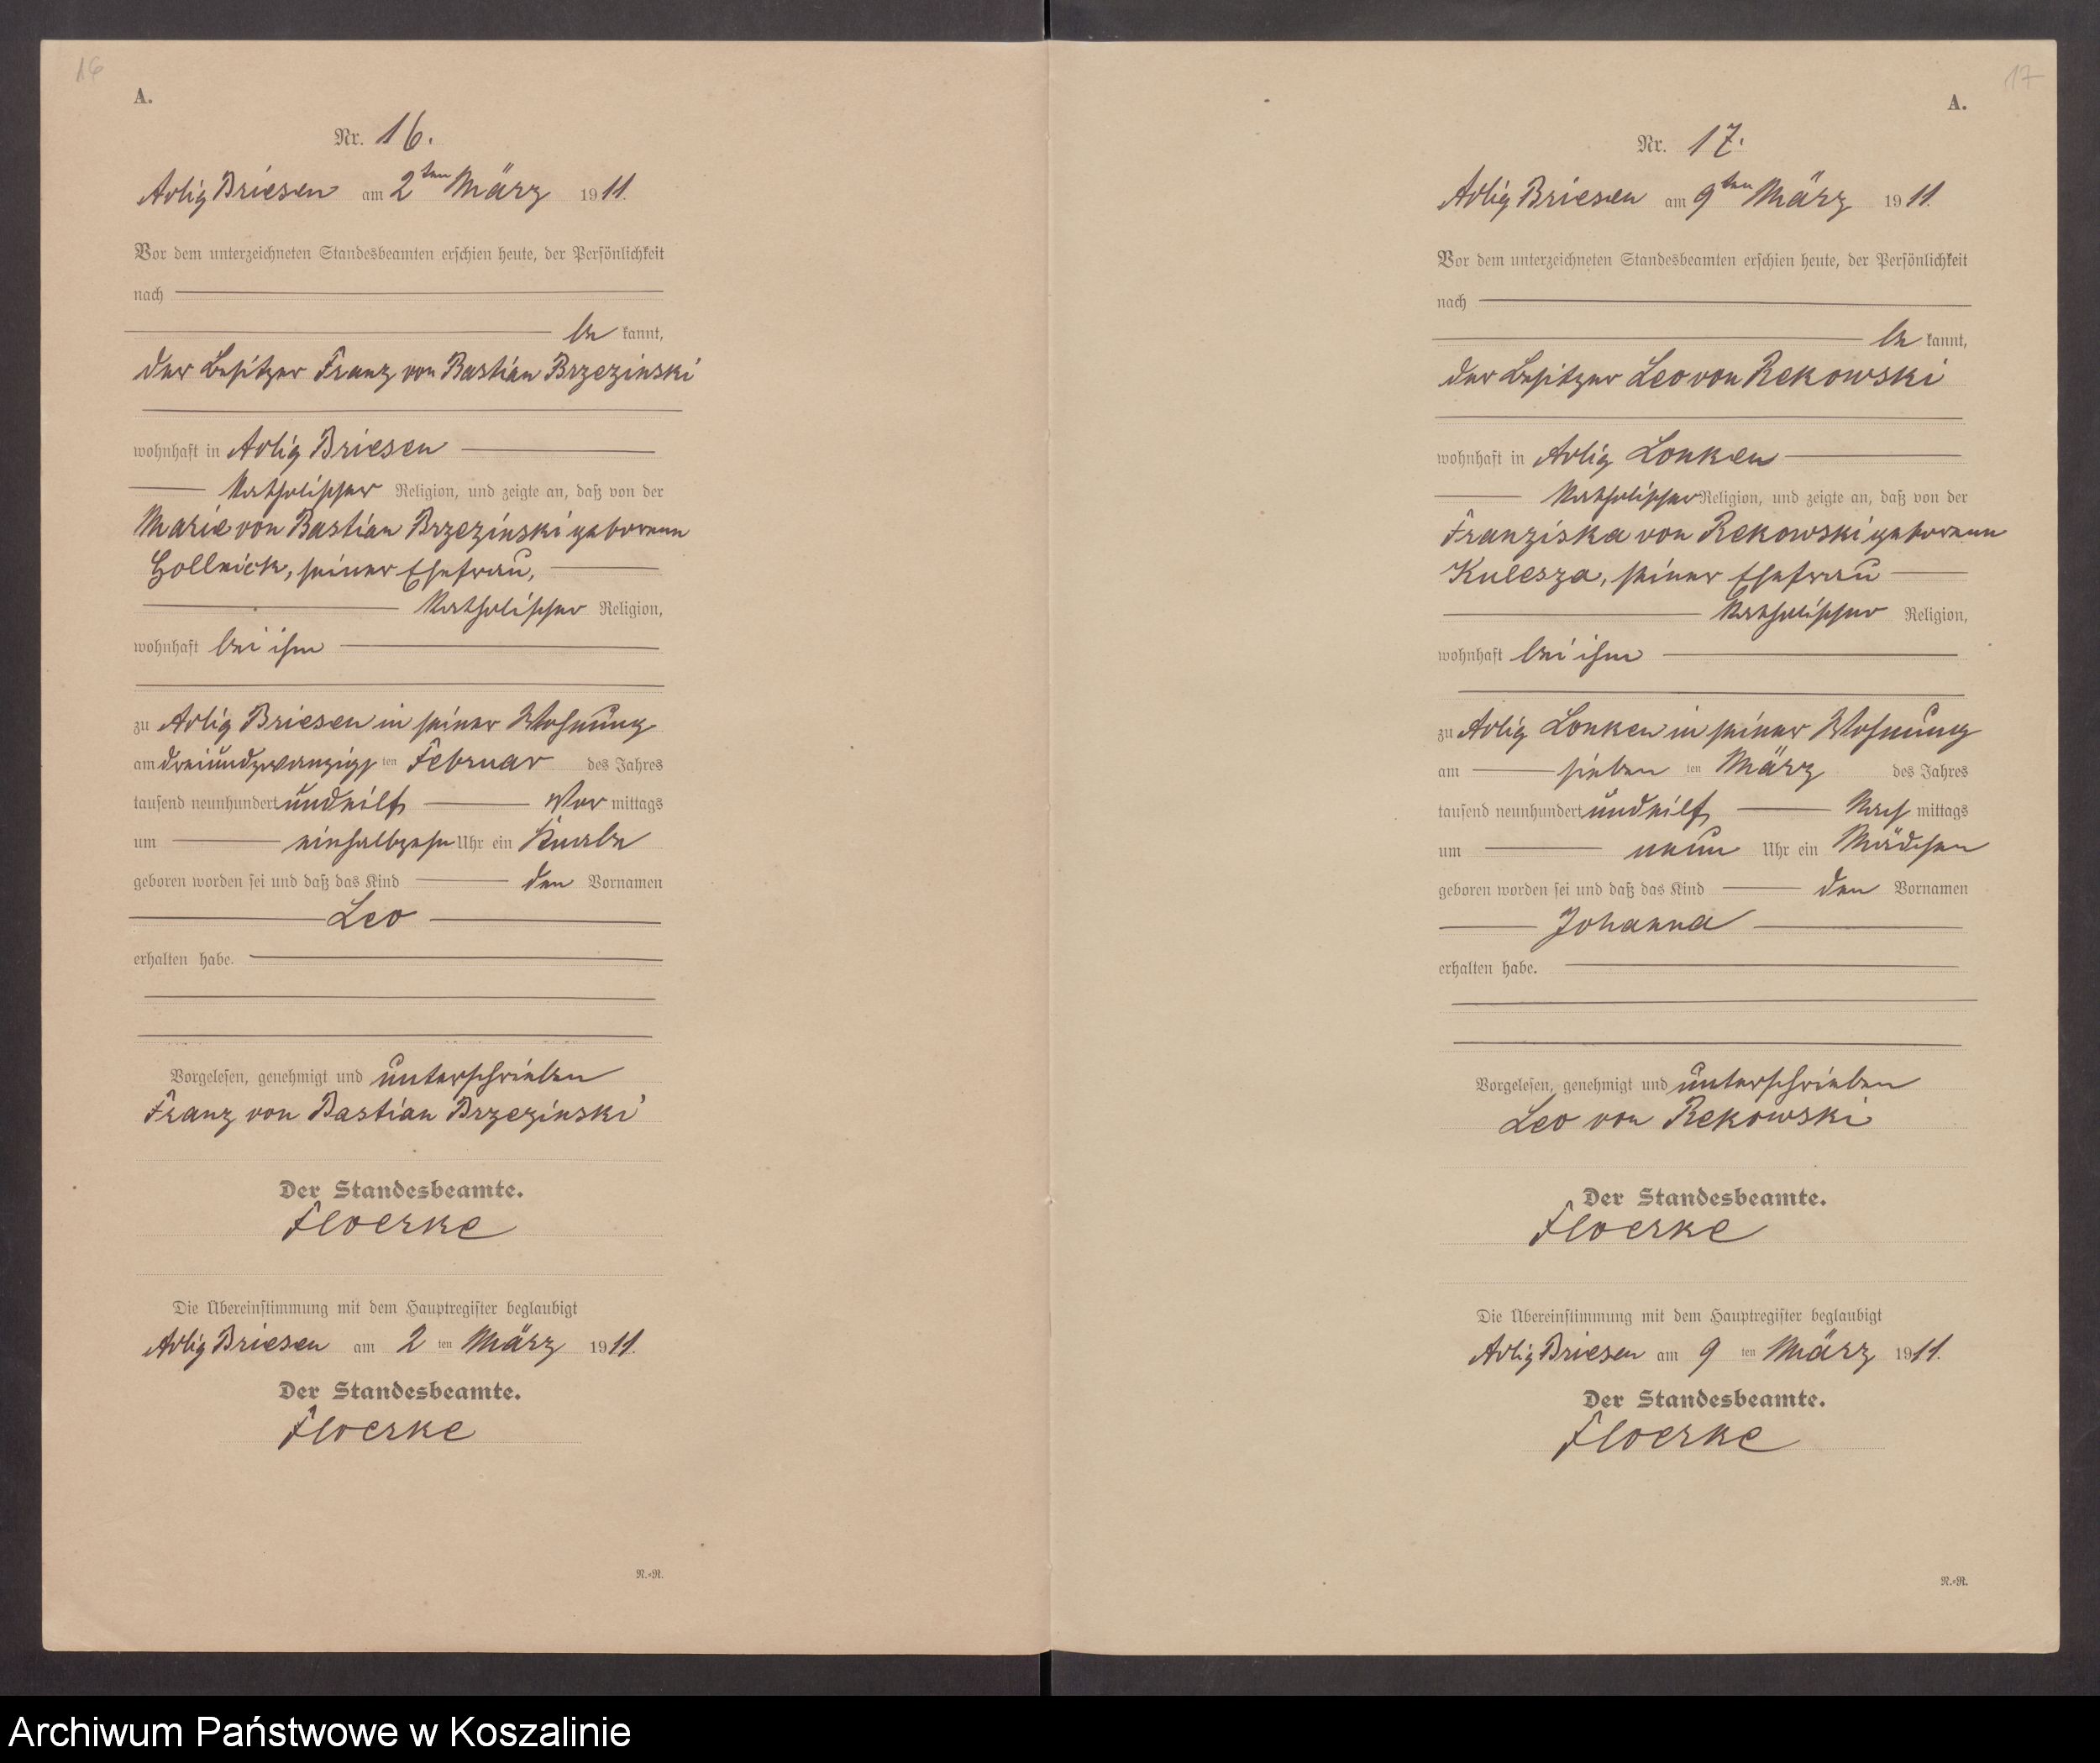 16
A.
Nr. 16.
Adlig Briesen am 2ten März 1911.
Vor dem unterzeichneten Standesbeamten erschien heute, der Persönlichkeit
nach
be kannt,
der Besitzer Franz von Bastian Brzezinski
wohnhaft in Adlig Briesen
katholischer Religion, und zeigte an, daß von der
Marie von Bastian Brzezinski geborenen
Gollnick, seiner Ehefrau,
katholischer Religion,
wohnhaft bei ihm
zu Adlig Briesen in seiner Wohnung
am dreiundzwanzigs ten Februar des Jahres
tausend neunhundert undeilf Vor mittags
um einhalbzehn Uhr ein Knabe
geboren worden sei und daß das Kind den Vornamen
Leo
erhalten habe.
Vorgelesen, genehmigt und unterschrieben
Franz von Bastian Brzezinski
Der Standesbeamte.
Floerke
Die Übereinstimmung mit dem Hauptregister beglaubigt
Adlig Briesen am 2 ten März 1911.
Der Standesbeamte.
Floerke
N.=R.
17
A.
Nr. 17.
Adlig Briesen am 9ten März 1911.
Vor dem unterzeichneten Standesbeamten erschien heute, der Persönlichkeit
nach
be kannt,
der Besitzer Leo von Rekowski
wohnhaft in Adlig Lonken
katholischer Religion, und zeigte an, daß von der
Franziska von Rekowski geborenen
Kulesza, seiner Ehefrau
katholischer Religion,
wohnhaft bei ihm
zu Adlig Lonken in seiner Wohnung
am sieben ten März des Jahres
tausend neunhundert undeilf Nach mittags
um neun Uhr ein Mädchen
geboren worden sei und daß das Kind den Vornamen
Johanna
erhalten habe.
Vorgelesen, genehmigt und unterschrieben
Leo von Rekowski
Der Standesbeamte.
Floerke
Die Übereinstimmung mit dem Hauptregister beglaubigt
Adlig Briesen am 9 ten März 1911.
Der Standesbeamte.
Floerke
N.=R.
Archiwum Państwowe w Koszalinie